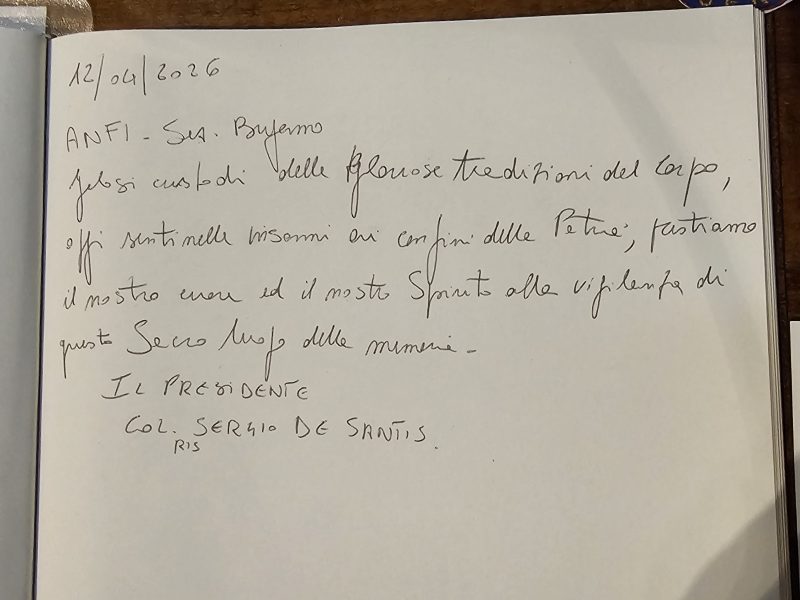 12/04/2026
ANFI - Sez.
Gelosi custodi delle gloriose tradizioni del Corpo,
oggi sentinelle insonni ai confini della Patria, prestiamo
il nostro cuore ed il nostro Spirito alla vigilanza di
questo Sacro luogo della memoria -
IL PRESIDENTE
COL. SERGIO DE SANTIS.
RIS